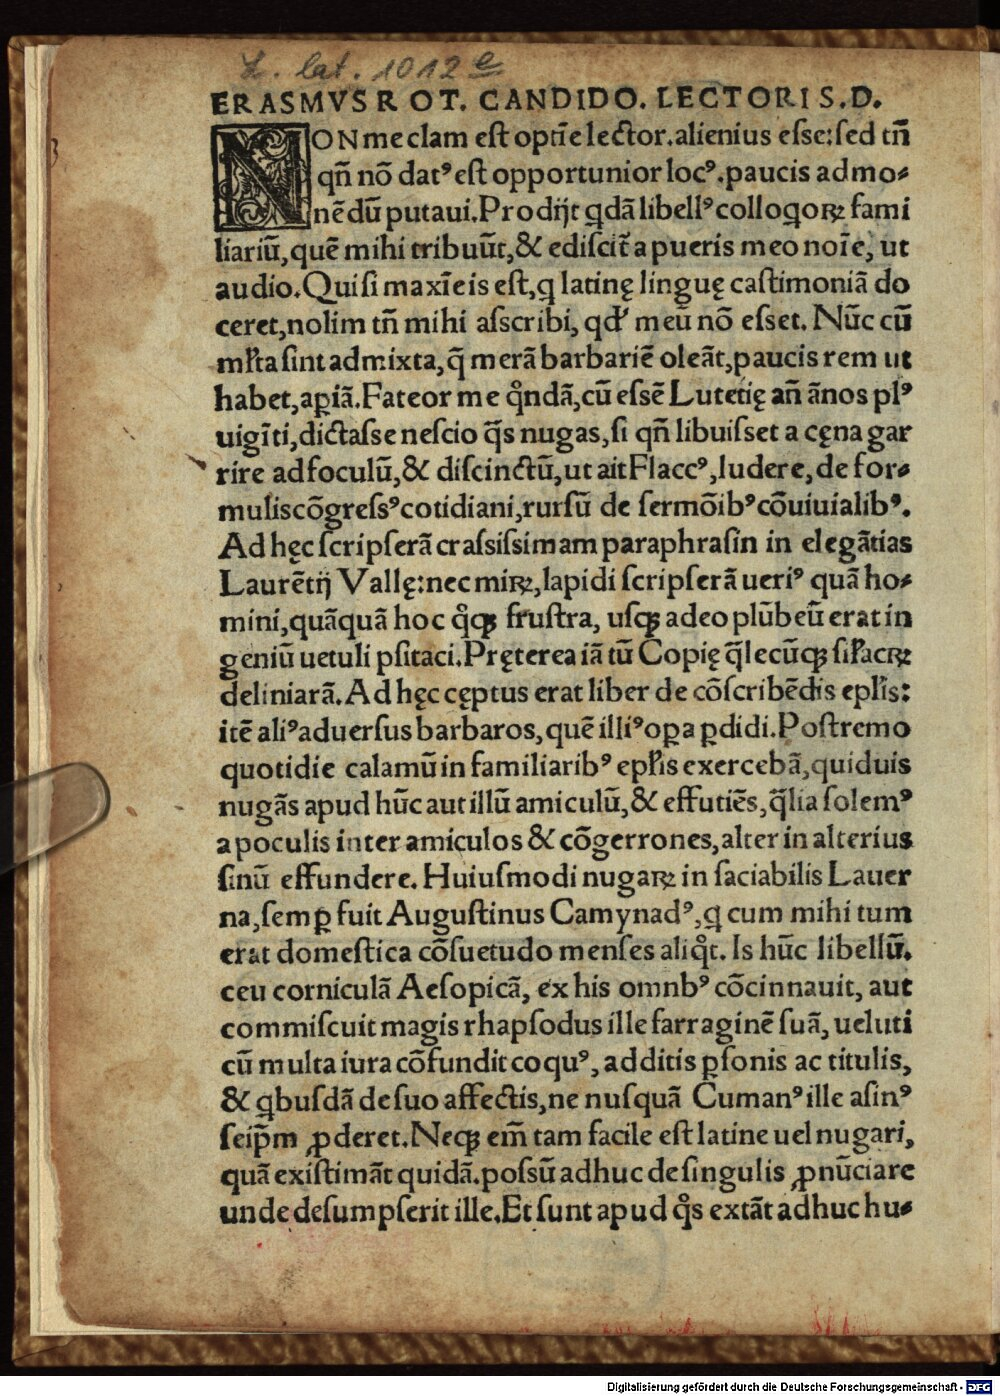 L. lat. 1012 e
ERASMVS ROT. CANDIDO. LECTORI S.D.
NON me clam eſt optīe lector. alienius eſse: ſed tñ
qñ nō datꝰ eſt opportunior locꝰ. paucis admo⸗
nēdū putaui. Prodijt qdā libellꝰ colloqoꝝ fami
liariū, quē mihi tribuūt, & ediſcit̃ a pueris meo noīe, ut
audio. Qui ſi maxīe is eſt, q latinę linguę caſtimoniā do
ceret, nolim tñ mihi aſscribi, qd' meū nō eſset. Nūc cū
mľta ſint admixta, q̄ merā barbariē oleāt, paucis rem ut
habet, aꝑiā. Fateor me qͦndā, cū eſsē Lutetię añ ānos plꝰ
uigīti, dictaſse neſcio q̄s nugas, ſi qñ libuiſset a cęna gar
rire ad foculū, & diſcinctū, ut ait Flaccꝰ, ludere, de for⸗
mulis cōgreſsꝰ cotidiani, rurſū de ſermōibꝰ cōuiuialibꝰ.
Ad hęc ſcripſerā craſsiſsimam paraphraſin in elegātias
Laurētij Vallę: nec miꝝ, lapidi ſcripſerā ueriꝰ quā ho⸗
mini, quāquā hoc qͦqꝫ fruſtra, uſqꝫ adeo plūbeū erat in
geniū uetuli pſitaci. Pręterea iā tū Copię q̄lecūqꝫ ſiľacꝝ
deliniarā. Ad hęc cęptus erat liber de cōſcribēdis epľis:
itē aliꝰ aduerſus barbaros, quē illiꝰ oꝑa ꝑdidi. Poſtremo
quotidie calamū in familiaribꝰ epľis exercebā, quiduis
nugās apud hūc aut illū amiculū, & effutiēs, q̄lia ſolemꝰ
a poculis inter amiculos & cōgerrones, alter in alterius
ſinū effundere. Huiuſmodi nugaꝝ in ſaciabilis Lauer
na, ſemꝑ fuit Auguſtinus Camynadꝰ, q cum mihi tum
erat domeſtica cōſuetudo menſes aliqͦt. Is hūc libellū.
ceu corniculā Aeſopicā, ex his omnbꝰ cōcinnauit, aut
commiſcuit magis rhapſodus ille farraginē ſuā, ueluti
cū multa iura cōfundit coquꝰ, additis ꝑſonis ac titulis,
& qbuſdā de ſuo affectis, ne nuſquā Cumanꝰ ille aſinꝰ
ſeip̄m ꝓderet. Neqꝫ em̄ tam facile eſt latine uel nugari,
quā exiſtimāt quidā. poſsū adhuc de ſingulis ꝓnūciare
unde deſumpſerit ille. Et ſunt apud qͦs extāt adhuc hu⸗
Digitalisierung gefördert durch die Deutsche Forschungsgemeinschaft - DFG